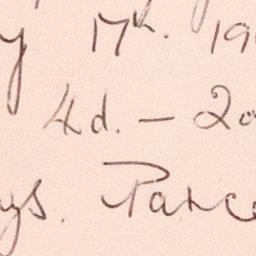 y 17th. 19
4d. – 20
ys. Parce